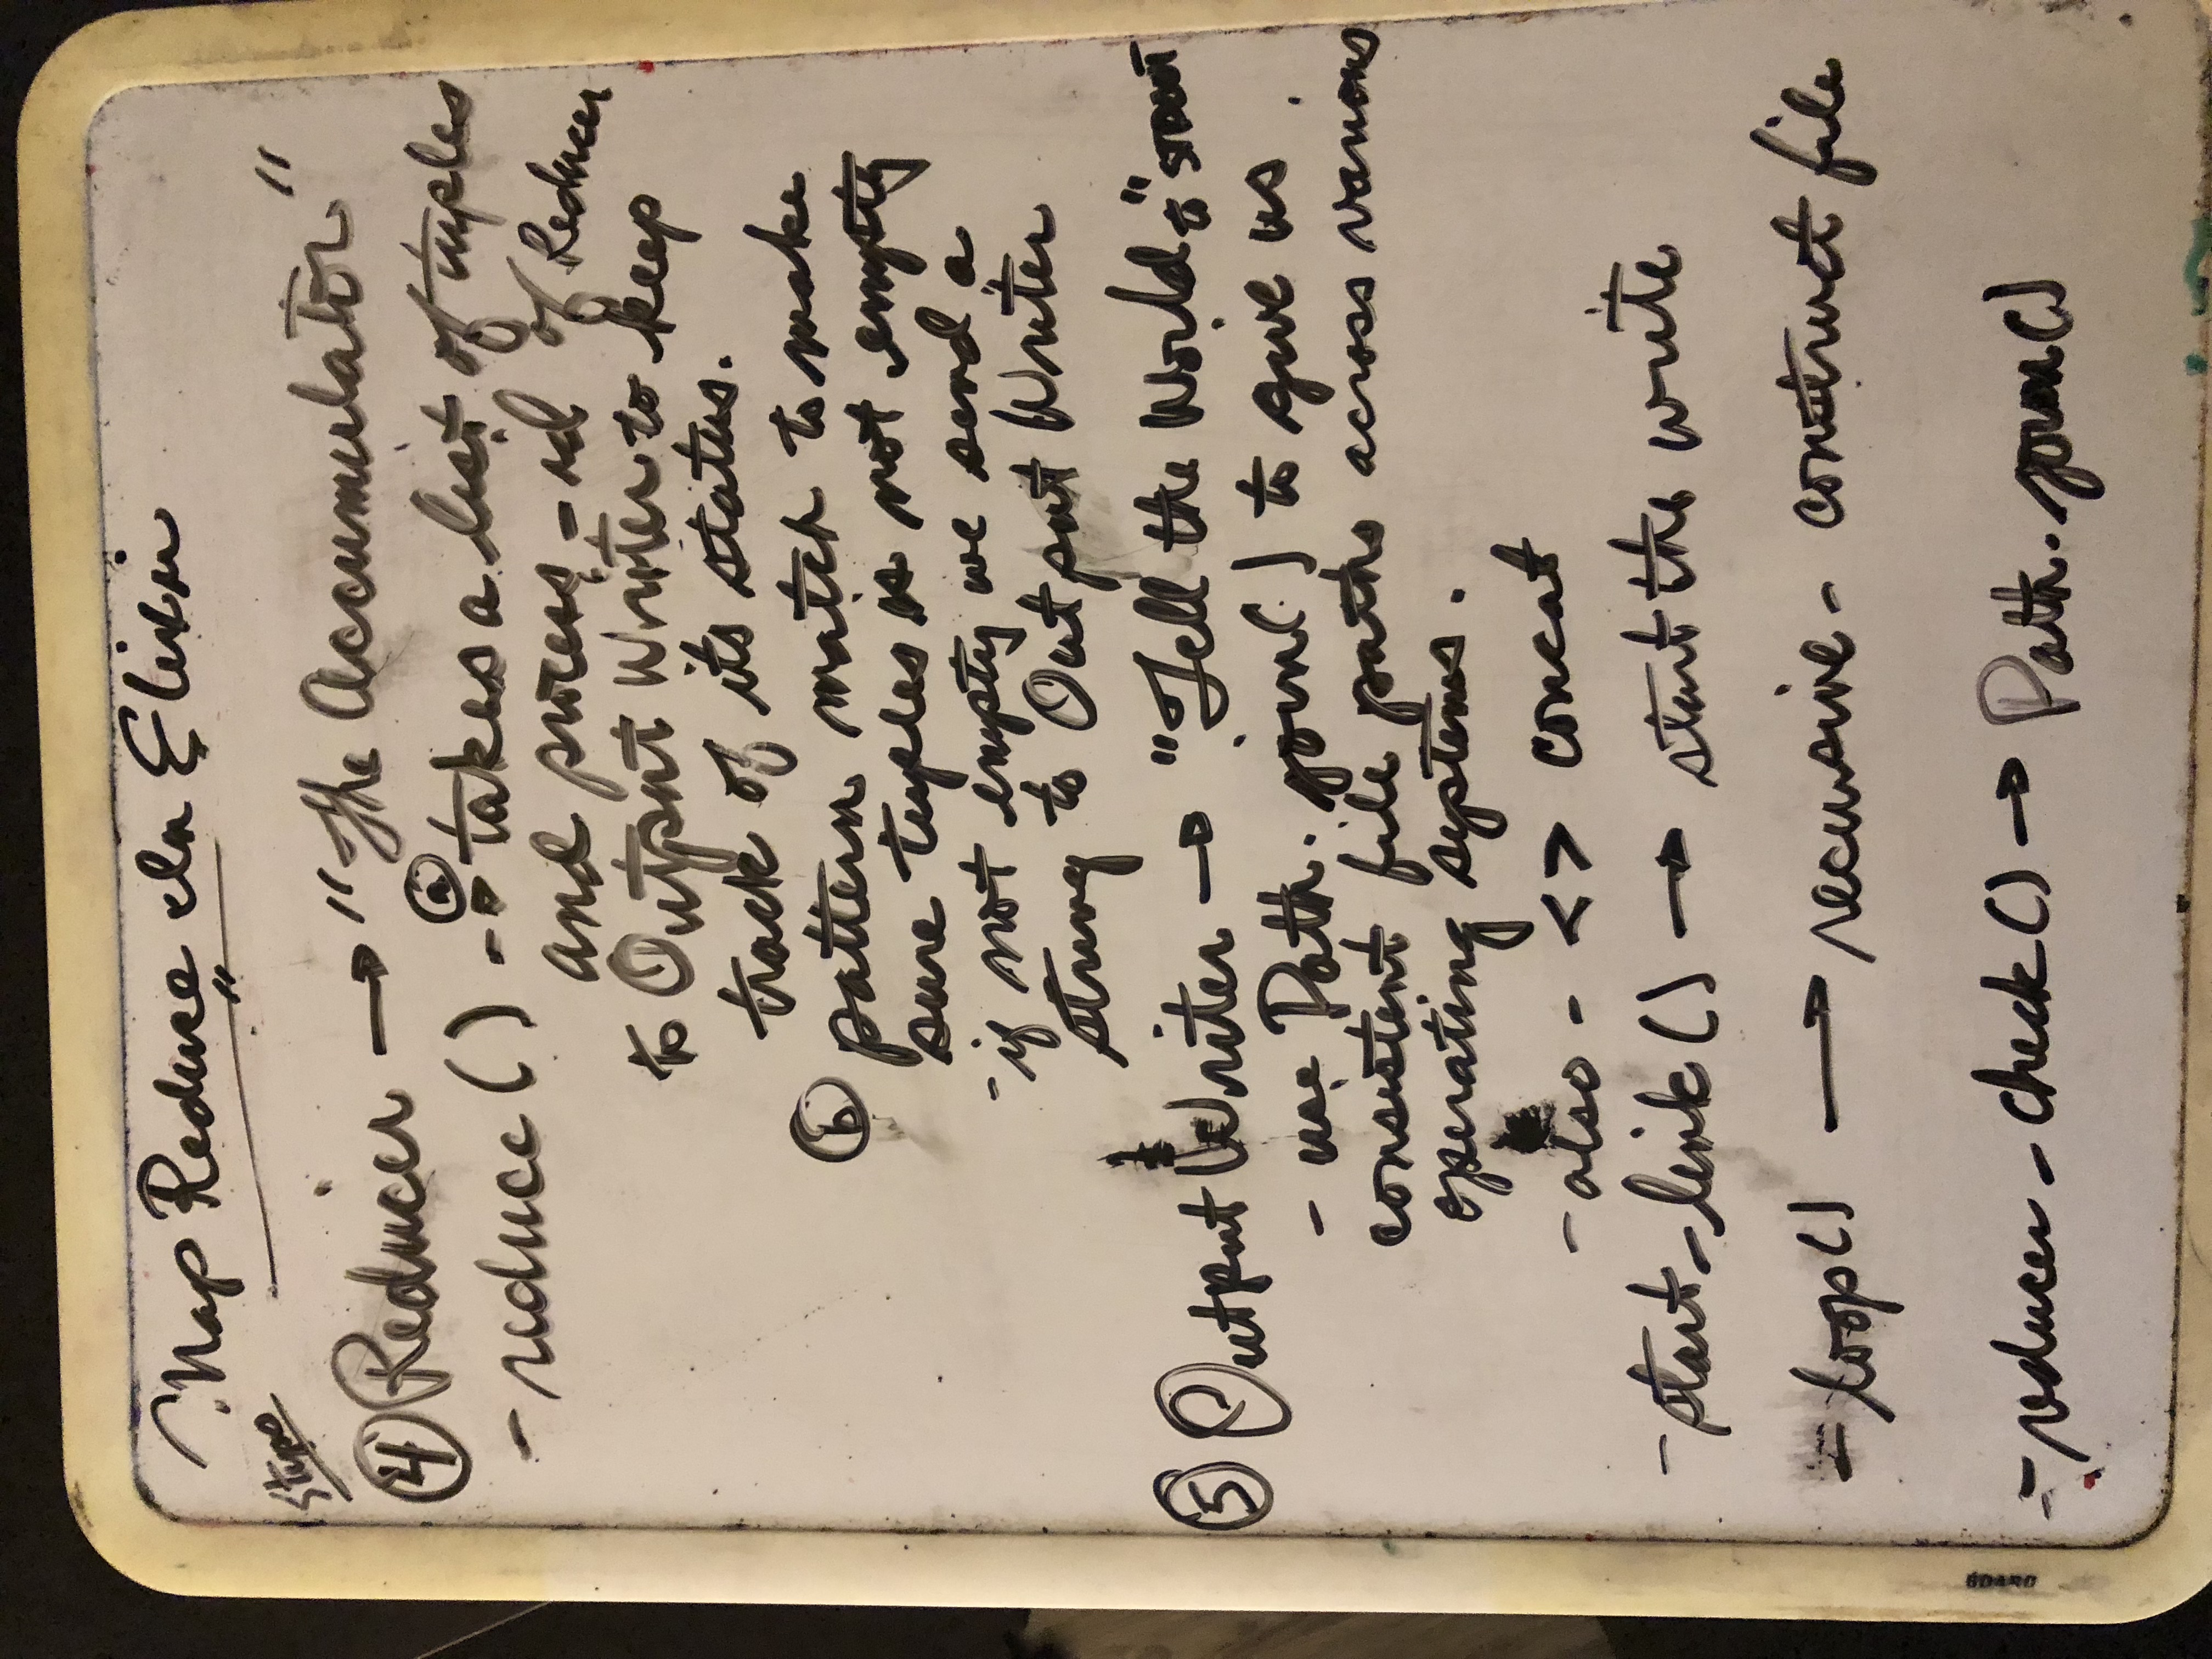 Map Reduce In Elixir
"
Steps
④ Reducer → "The Accumulator"
- reduce() -→ ⓐ takes a list of tuples
and process-id of Reducer
to Output Writer to keep
track of its status.
ⓑ pattern match to make
sure tuples is not empty
- if not empty we send a
string to Output Writer
⑤ Output Writer → "Tell the World" to STDOUT
- use Path.join() to give us
consistent file paths across various
operating systems.
- also - <> concat
- start_link() → start the write
- loop() → recursive - construct file
- reducer_check() → Path.join()